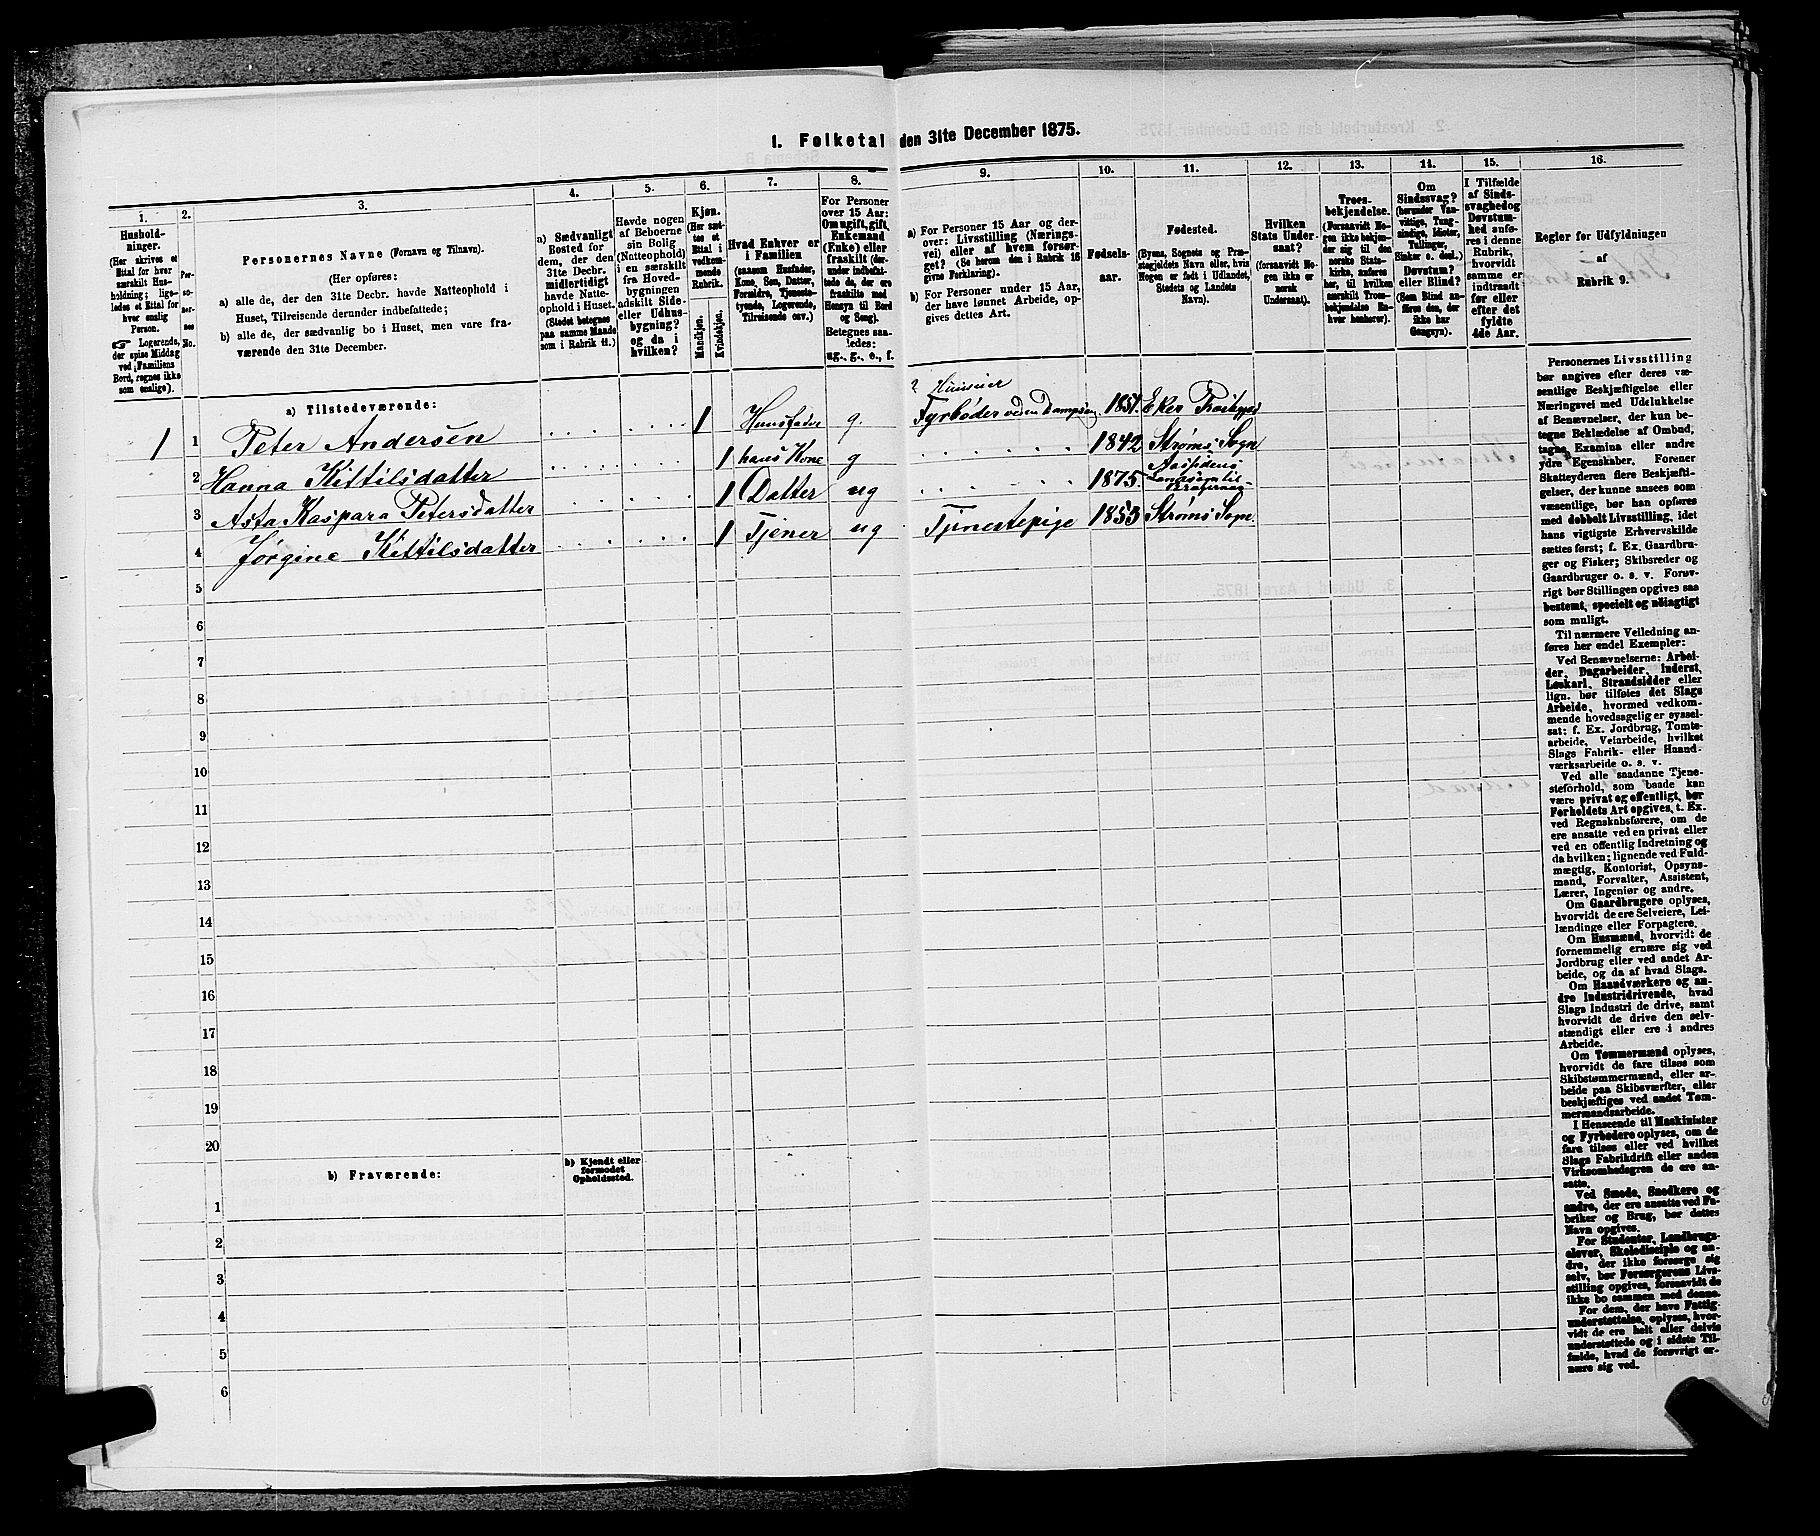 1. Folketal den 31te December 1875.
1.
Hushold-
ninger.
(Her skrives et
Ettal for hver
særskilt Hus-
holdning; lige-
ledes et Ettal for
hver enslig
Person.
☞ Logerende,
der spise Middag
ved Familiens
Bord, regnes ikke
som enslige).
2.
Per-
so-
ner-
nes
No.
3.
Personernes Navne (Fornavn og Tilnavn).
(Her opføres:
a) alle de, der den 31te Decbr. havde Natteophold i
Huset, Tilreisende derunder indbefattede;
b) alle de, der sædvanlig bo i Huset, men vare fra-
værende den 31te December.
4.
a) Sædvanligt
Bosted for
dem, der den
31te Decbr.
midlertidigt
havde Natte-
ophold i Huset.
(Stedet betegnes
paa samme Maade
som i Rubrik 11.)
5.
Havde nogen
af Beboerne
sin Bolig
(Natteophold)
i en særskilt
fra Hoved-
bygningen
adskilt Side-
eller Udhus-
bygning?
og da i
hvilken?
6.
Kjøn.
(Her sæt-
tes et
Ettal i
vedkom-
mende
Rubrik.
Mandkjøn.
Kvindekjøn.
7.
Hvad Enhver er
i Familien
(saasom Husfader,
Kone, Søn, Datter,
Forældre, Tjeneste-
tyende, Logerende,
Tilreisende osv.)
8.
For Personer
over 15 Aar:
Om ugift, gift,
Enkemand
(Enke) eller
fraskilt (der-
under indbefat-
tede de, der ere
fraskilte med
Hensyn til Bord
og Seng).
Betegnes saa-
ledes:
ug., g., e., f.
9.
a) For Personer 15 Aar og der-
over: Livsstilling (Nærings-
vei) eller af hvem forsør-
get? (Se herom den i Rubrik 16
givne Forklaring).
b) For Personer under 15 Aar,
der have lønnet Arbeide, op-
gives dettes Art.
10.
Fødsels-
aar.
11.
Fødested.
(Byens, Sognets og Præ-
stegjeldets Navn eller, hvis
Nogen er født i Udlandet,
Stedets og Landets
Navn).
12.
Hvilken
Stats Under-
saat?
(forsaavidt No-
gen ikke er
norsk
Undersaat).
13.
Troes-
bekjendelse.
(Forsaavidt No-
gen ikke bekjen-
der sig til den
norske Stats-
kirke, anføres
her, til hvilken
særskilt Troes-
bekjendelse En-
hver henhører).
14.
Om
Sindssvag?
(herunder Van-
vittige, Tung-
sindige, Idioter,
Tullinger,
Sinker o. desl.)
Døvstum?
eller Blind?
(Som Blind an-
føres den, der
ikke har
Gangsyn).
15.
I Tilfælde
af Sinds-
svaghed og
Døvstum-
hed anfø-
res i denne
Rubrik,
hvorvidt
samme er
indtraadt
før eller
efter det
fyldte
4de Aar.
16.
Regler for Udfyldningen
af
Rubrik 9.
a) Tilstedeværende:
1 1 Peter Andersen 1 Huusfader g. ? Huuseier Fyrbøder 1851. Eker
2 Hanna Kittilsdatter 1 hans Kone g 1842 Strøms Sogn
3 Asta Kaspara Petersdatter 1 Datter ug 1875
4 Jørgine Kittilsdatter 1 Tjener ug Tjenestepige 1853 Strøms Sogn
5
6
7
8
9
10
11
12
13
14
15
16
17
18
19
20
b) Fraværende:
b) Kjendt eller
formodet
Opholdssted.
1
2
3
4
5
6
Personernes Livsstilling
bør angives efter deres væ-
sentlige Beskjæftigelse eller
Næringsvei med Udelukkelse
af Benævnelser, der kun be-
tegne Beklædelse af Ombud,
tagne Examina eller andre
ydre Egenskaber. Forener
Skatteyderen flere Beskjæfti-
gelser, der kunne ansees som
væsentlige, bør han opføres
med dobbelt Livsstilling, idet
hans vigtigste Erhvervskilde
sættes først; f. Ex. Gaardbru-
ger og Fisker; Skibsreder og
Gaardbruger o. s. v. Forøv-
rigt bør Stillingen opgives saa
bestemt, specielt og nøiagtigt
som muligt.
Til nærmere Veiledning an-
føres her endel Exempler:
Ved Benævnelserne: Arbei-
der, Dagarbeider, Inderst,
Løskarl, Strandsidder eller
lign. bør tilføies det Slags
Arbeide, hvormed vedkom-
mende hovedsagelig er syssel-
sat; f. Ex. Jordbrug, Tomte-
arbeide, Veiarbeide, hvilket
Slags Fabrik- eller Haand-
værksarbeide o. s. v.
Ved alle saadanne Tjene-
steforhold, som baade kan
være privat og offentligt, bør
Forholdets Art opgives, t. Ex.
ved Regnskabsførere, om de
ere ansatte ved en privat eller
ved en offentlig Indretning og
da hvilken; lignende ved Fuld-
mægtig, Kontorist, Opsyns-
mand, Forvalter, Assistent,
Lærer, Ingeniør og andre.
Om Gaardbrugere oplyses,
hvorvidt de ere Selveiere, Lei-
lændinge eller Forpagtere.
Om Husmænd, hvorvidt de
fornemmelig ernære sig ved
Jordbrug eller ved andet Ar-
beide, og da af hvad Slags.
Om Haandværkere og an-
dre Industridrivende, hvad
Slags Industri de drive, samt
hvorvidt de drive den selv-
stændigt eller ere i andres
Arbeide.
Om Tømmermænd oplyses,
hvorvidt de fare tilsøs som
Skibstømmermænd, eller ar-
beide paa Skibsværfter, eller
beskjæftiges ved andet Tøm-
mermandsarbeide.
I Henseende til Maskinister
og Fyrbødere oplyses, om de
fare tilsøs eller ved hvilket
Slags Fabrikdrift eller anden
Virksomhedsgren de ere an-
satte.
Ved Smede, Snedkere og
andre, der ere ansatte ved Fa-
briker og Brug, bør dettes
Navn opgives.
For Studenter, Landbrugs-
elever, Skoledisciple og an-
dre, der ikke forsørge sig
selv, bør Forsørgerens Livs-
stilling opgives, forsaavidt de
ikke bo sammen med denne.
For dem, der have Fattig-
understøttelse, oplyses, hvor-
vidt de ere helt eller delvis
understøttede og i sidste Til-
fælde, hvad de forøvrigt er-
nære sig ved.